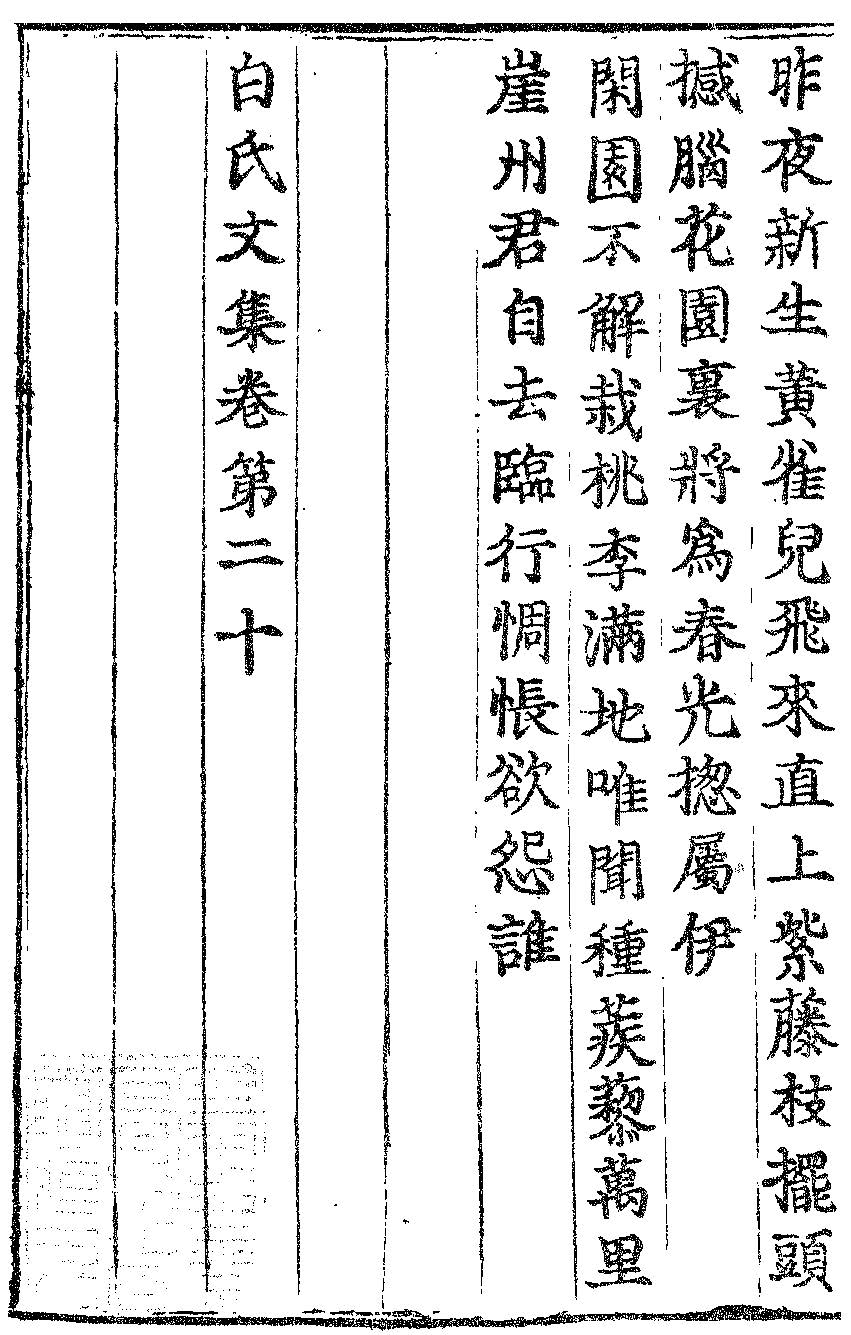 昨夜新生黃雀兒飛來直上紫藤枝擺頭
撼腦花園裏將爲春光揔屬伊
閑園不解栽桃李滿地唯聞種蒺藜萬里
崖州君自去臨行惆悵欲怨誰
白氏文集卷第二十